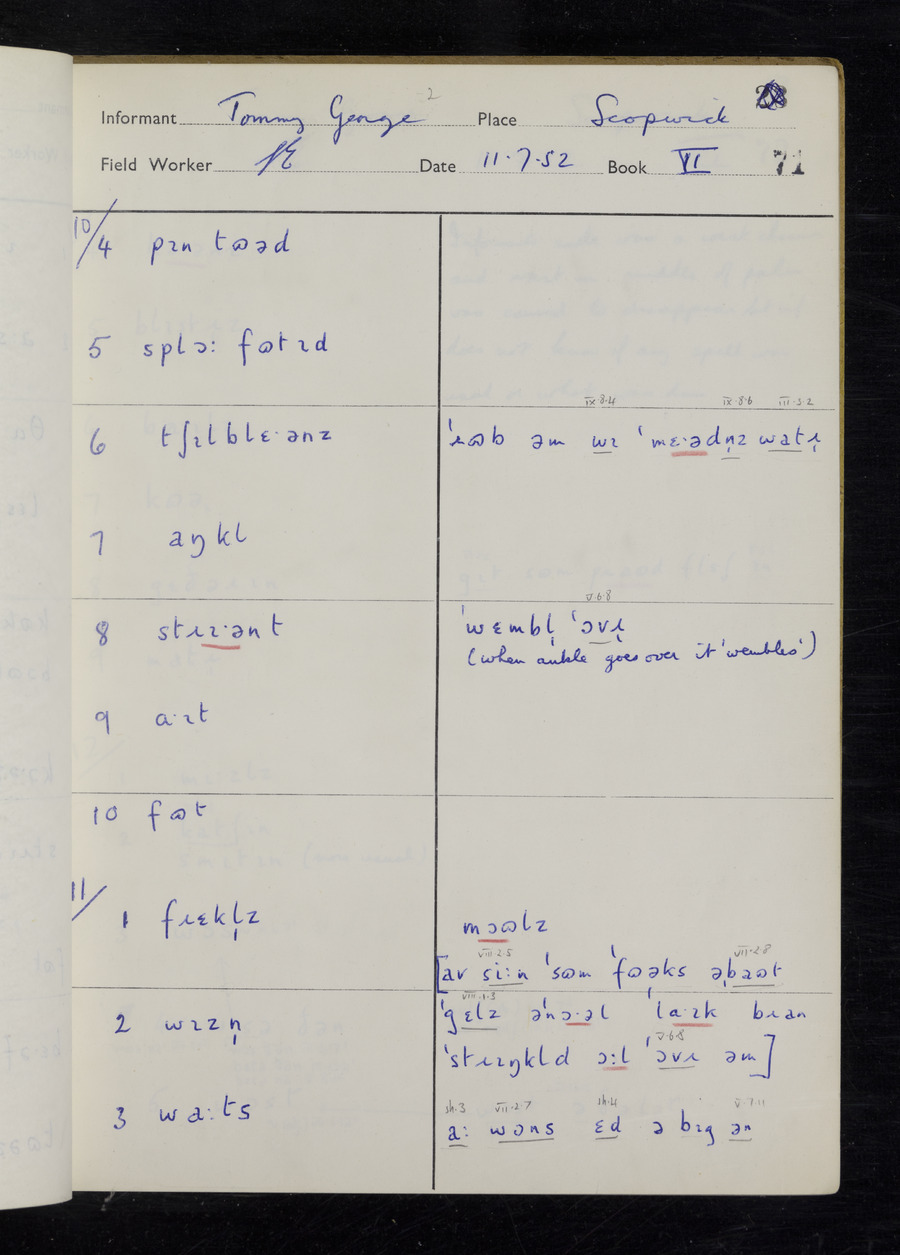 Informant Tommy George 2 Place Scopwick
Field Worker Date 11·7·52 Book VI 71
10/4 pɪn tɷəd
5 splɔ: fɷtɪd
IX·8·4 IX·8·6 III·3·2
6 tʃɪlblɛ·ənz 'ɹɷb əm wɪ 'mɛ·ədn̩z watɹ̩
7 aŋkl
V·6·8
8 stɹɪ·ənt 'wɛmbl̩ 'ɔvɹ̩
(when ankle goes over it 'wembles')
9 a·ɪt
10 fɷt
11/
1 fɹɛkl̩z mɔɷlz
VIII·2·5 VII·2·8
[av si:n 'sɷm 'fɷəks əbaɷt
VIII·1·3
2 wɪzn̩ 'gɛlz ə'nɔ·əl 'la·ɪk bɹan
V·6·8
'stɹɪŋkld ɔ:l 'ɔvɹ əm]
sh.3 VII·2·7 sh.4 V·7·11
3 wa:ts a: wɔns ɛd ə bɪg ən